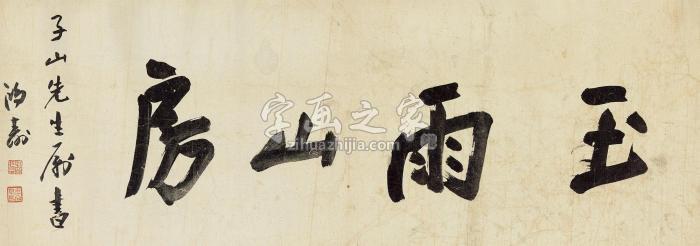 玉雨山房
子山先生属书
鸿寿
字画之家
zihuazhijia.com